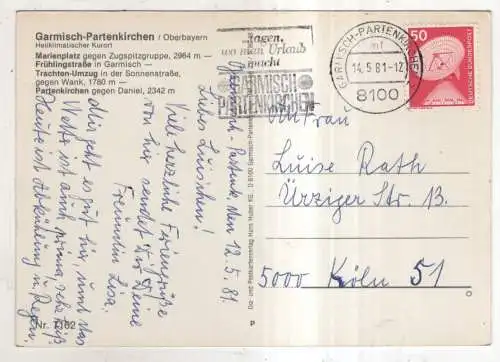 Garmisch-Partenkirchen / Oberbayern
Heilklimatischer Kurort
Marienplatz gegen Zugspitzgruppe, 2964 m —
Frühlingstraße in Garmisch —
Trachten-Umzug in der Sonnenstraße,
gegen Wank, 1780 m —
Partenkirchen gegen Daniel, 2342 m
Sagen,
wo man Urlaub
macht
GARMISCH
PARTENKIRCHEN
GARMISCH-PARTENKIRCHEN
mf
14.5.81-12
8100
50
DEUTSCHE BUNDESPOST
Garmisch-Partenk., den 12.5.81.
Liebes Luischen!
Viele herzliche Feriengrüße
von hier sendet Dir Deine
Freundin Lisa.
Uns geht es gut hier, und das
Wetter ist auch prima, sehr heiß
Heute ist Abkühlung u. Regen.
Nr. 7162
Hans Huber KG, D 8100 Garmisch-Partenkirchen
P
An Frau
Luise Rath
Ürziger Str. 13.
5000 Köln 51